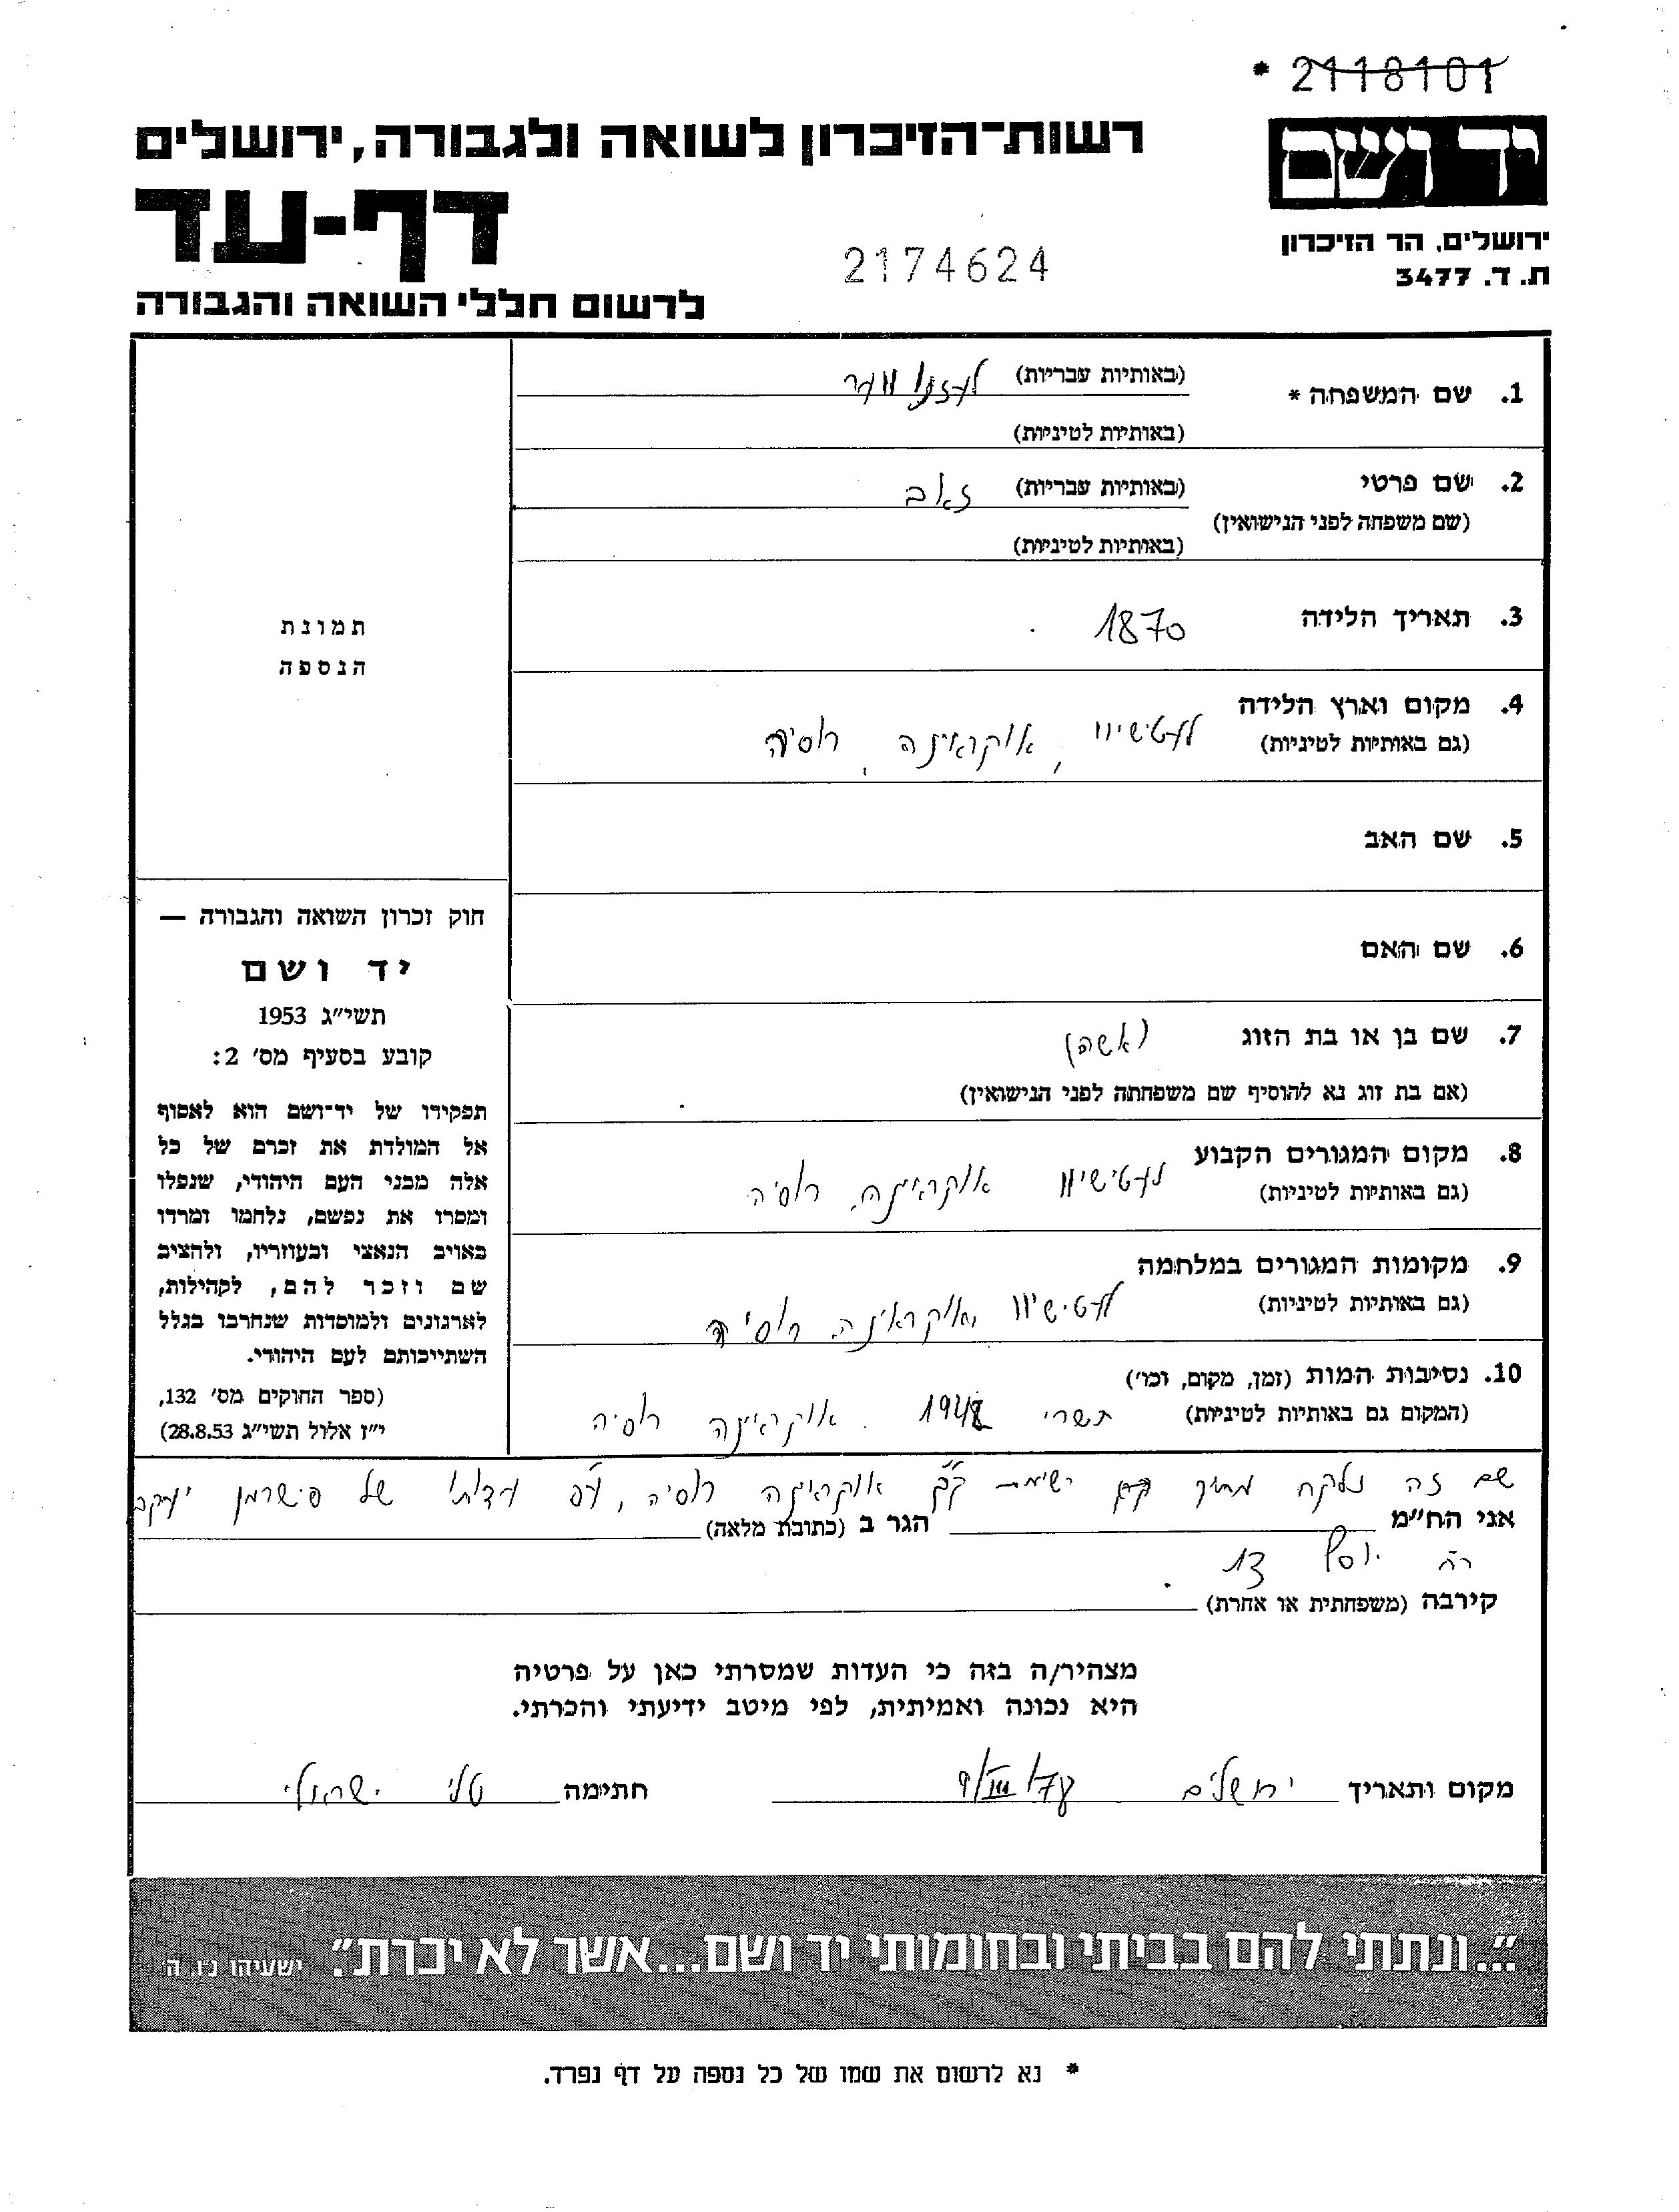 * 2118101
יד ושם
רשות-הזיכרון לשואה ולגבורה, ירושלים
דף-עד
ירושלים, הר הזיכרון
ת. ד. 3477
2174624
לרשום חללי השואה והגבורה
1. שם המשפחה *
(באותיות עבריות)
(באותיות לטיניות)
2. שם פרטי
(באותיות עבריות) זאב
(שם משפחה לפני הנישואין)
(באותיות לטיניות)
3. תאריך הלידה 1870
4. מקום וארץ הלידה
(גם באותיות לטיניות) לטישיוו, אוקראינה, רוסיה
5. שם האב
6. שם האם
7. שם בן או בת הזוג (אשה)
(אם בת זוג נא להוסיף שם משפחתה לפני הנישואין)
8. מקום המגורים הקבוע
(גם באותיות לטיניות) לטישיוו אוקראינה, רוסיה
9. מקומות המגורים במלחמה
(גם באותיות לטיניות) לטישיוו, אוקראינה, רוסיה
10. נסיבות המות (זמן, מקום, וכו')
(המקום גם באותיות לטיניות) תשרי אוקראינה רוסיה
תמונת
הנספה
חוק זכרון השואה והגבורה —
יד ושם
תשי״ג 1953
קובע בסעיף מס׳ 2:
תפקידו של יד-ושם הוא לאסוף
אל המולדת את זכרם של כל
אלה מבני העם היהודי, שנפלו
ומסרו את נפשם, נלחמו ומרדו
באויב הנאצי ובעוזריו, ולהציב
שם וזכר להם, לקהילות,
לארגונים ולמוסדות שנחרבו בגלל
השתייכותם לעם היהודי.
(ספר החוקים מס׳ 132,
י״ז אלול תשי״ג 28.8.53)
שם זה נלקח מתוך רשימת אוקראינה רוסיה, עפ עדותו של פישרמן יעקב
אני הח״מ
הגר ב (כתובת מלאה)
רח יוסף
קירבה (משפחתית או אחרת)
מצהיר/ה בזה כי העדות שמסרתי כאן על פרטיה
היא נכונה ואמיתית, לפי מיטב ידיעתי והכרתי.
מקום ותאריך ירושלים 9/III/78 חתימה טלי ישראלי
״...ונתתי להם בביתי ובחומותי יד ושם...אשר לא יכרת״. ישעיהו נ״ו, ה׳
* נא לרשום את שמו של כל נספה על דף נפרד.